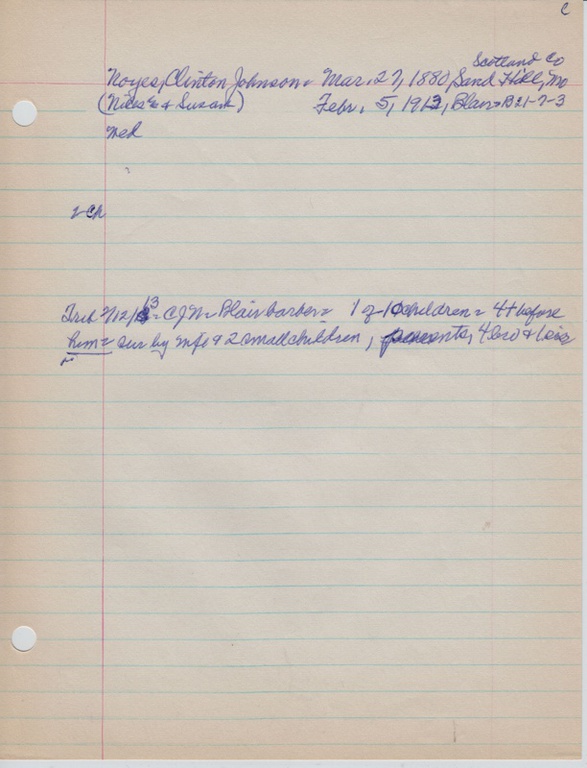 C
Scotland Co
Noyes, Clinton Johnson = Mar. 27, 1880, Sand Hill, Mo
(Niles & Susan) Febr. 5, 1913, Blair = B21-7-3
Wed
2 ch
Trib 2/12/13 = CJN = Blair barber = 1 of 10 children = 4 + before
him = sur by wife & 2 small children, parents, 4 bro & 1 sis